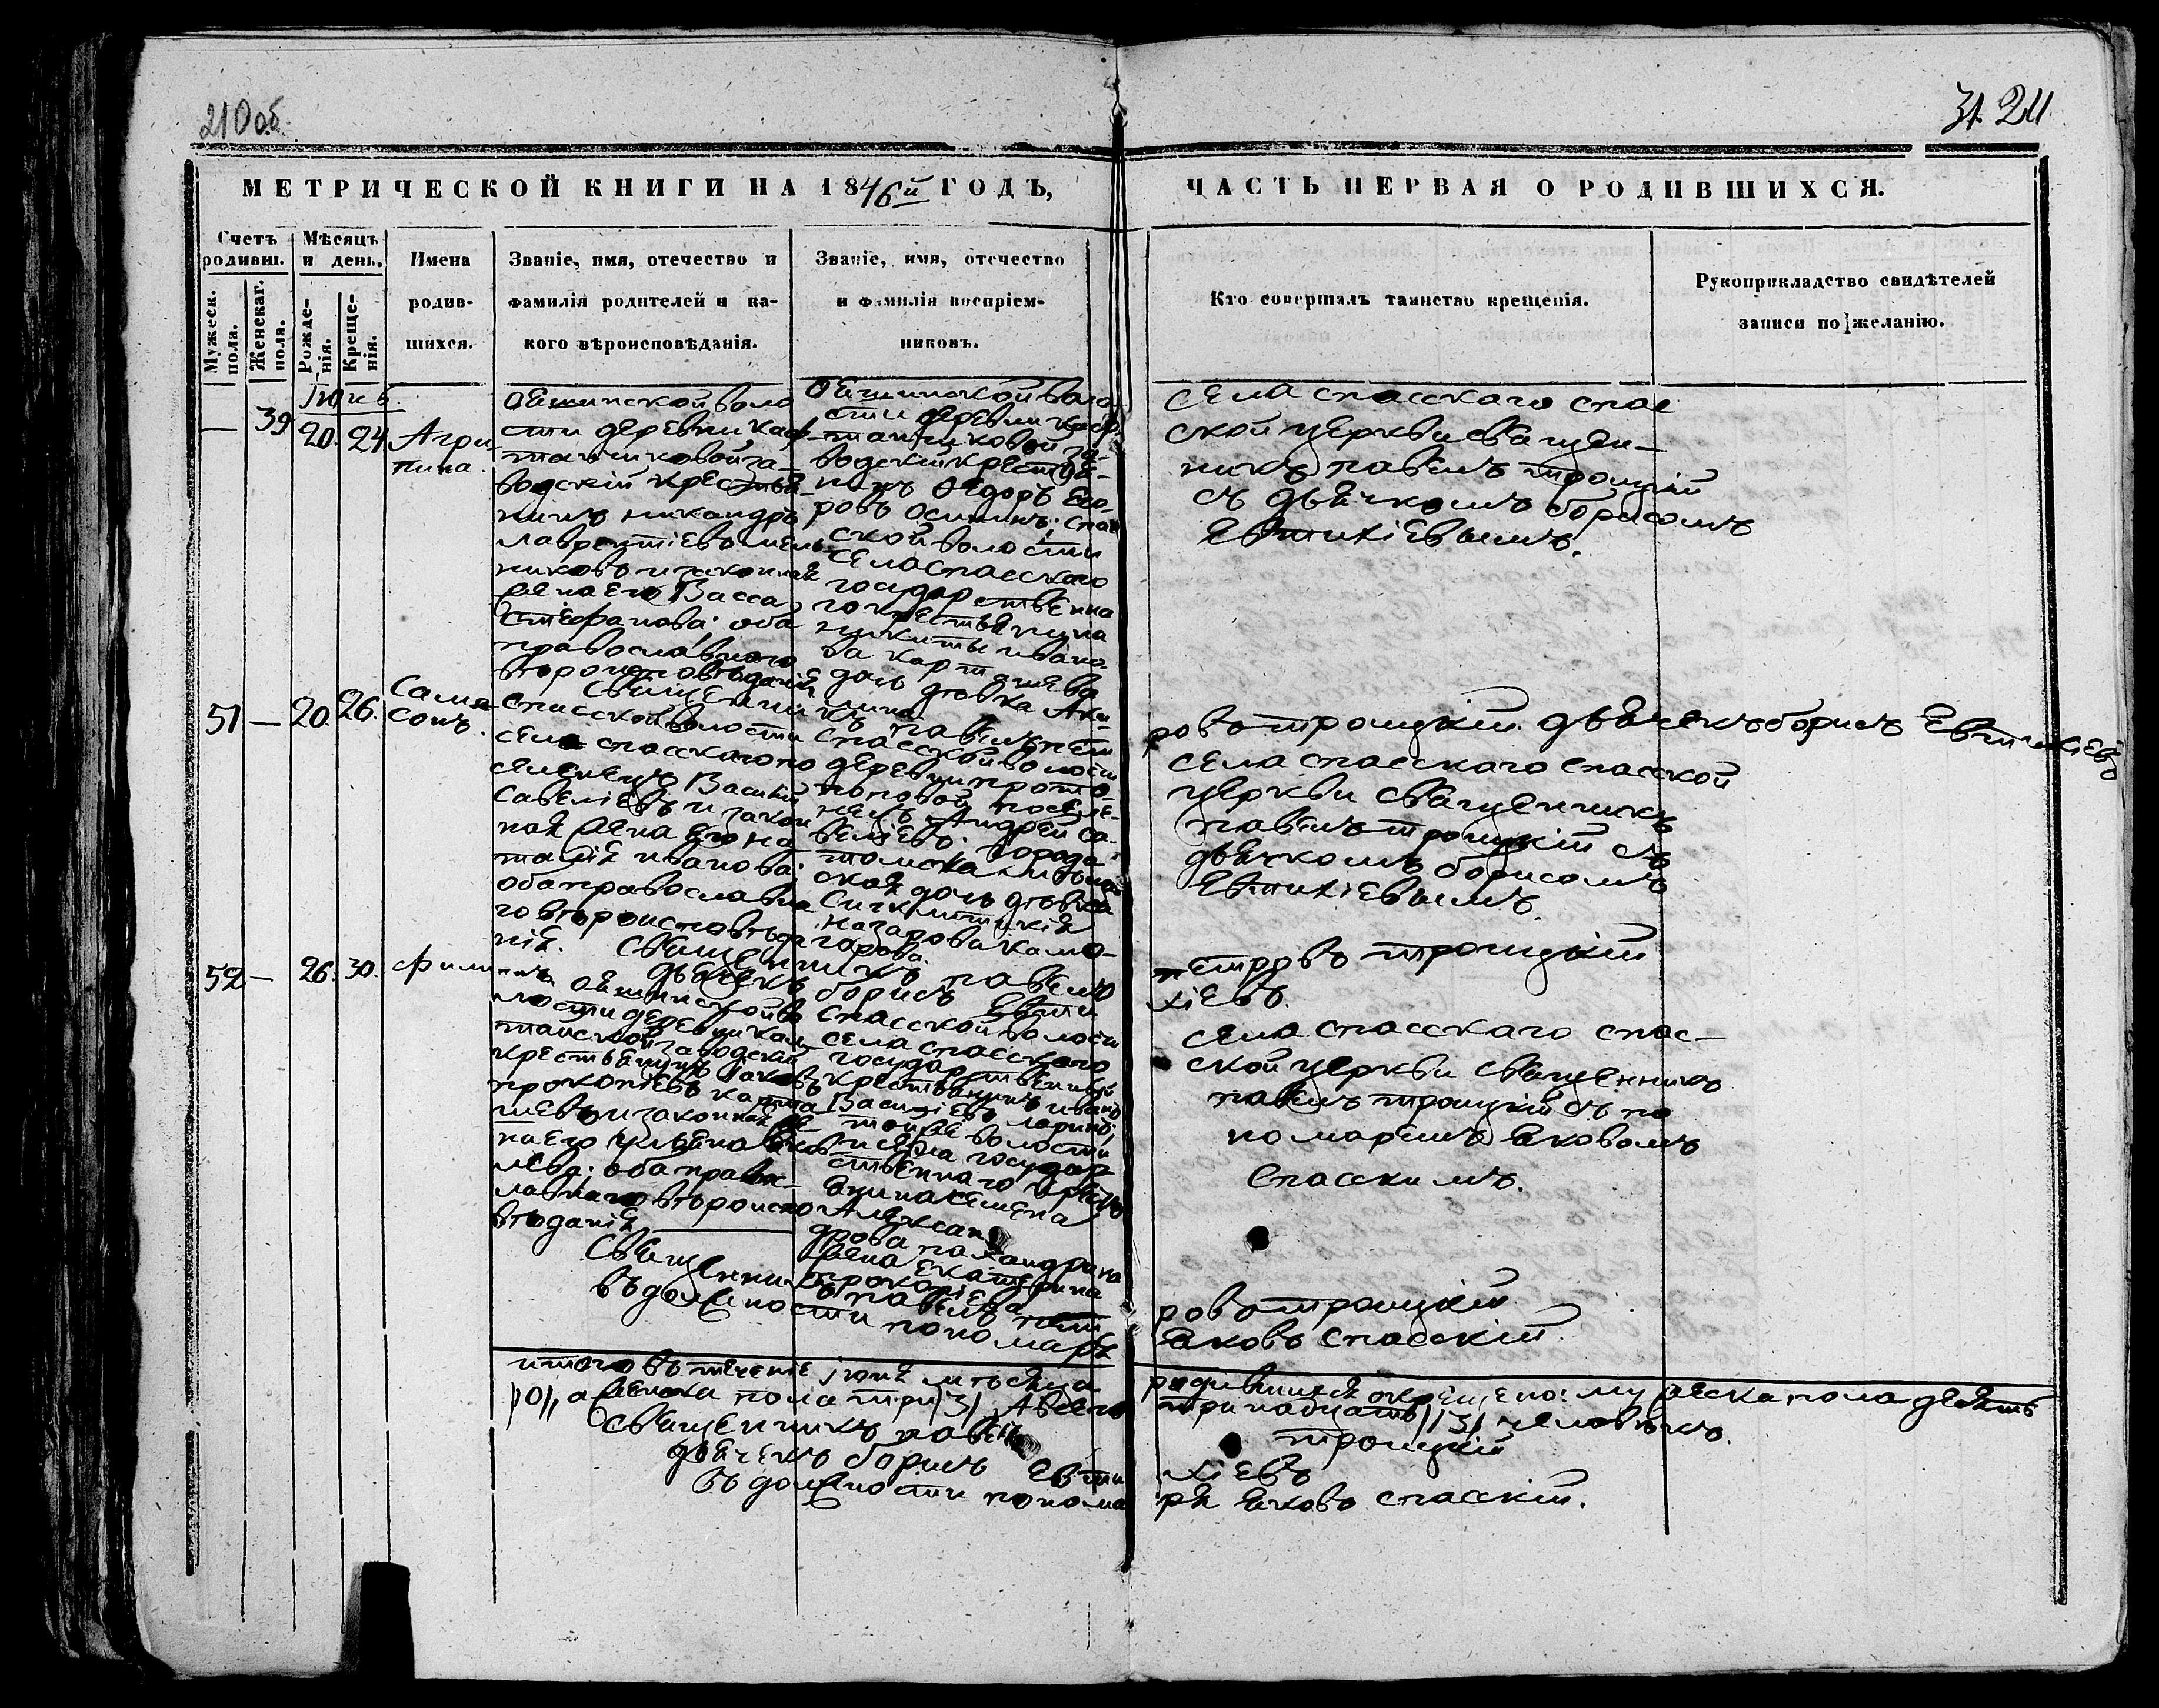 210 об.
31. 211
МЕТРИЧЕСКОЙ КНИГИ НА 1846й ГОДЪ,
ЧАСТЬ ПЕРВАЯ О РОДИВШИХСЯ.
Счетъ родивш.
Мужеск. пола.
Женскаг. пола.
Мѣсяцъ и день.
Рожде-
нія.
Креще-
нія.
Имена
родив-
шихся.
Званіе, имя, отечество и
фамилія родителей и ка-
кого вѣроисповѣданія.
Званіе, имя, отечество
и фамилія воспріем-
никовъ.
Кто совершалъ таинство крещенія.
Рукоприкладство свидѣтелей
записи по желанію.
Іюнь.
— 39 20. 24
Агри-
пина.
Ояшинской воло
сти деревни
водскій кресть
нинъ никандръ
лаврентіевъ
никовъ и законная
жена его Васса
Стефанова: оба
православнаго
вѣроисповѣданія
Ояшинской воло
сти деревни
водскій крестья-
нинъ Федоръ Его-
ровъ Осининъ; Спас
ской волости
села спасскаго
государственна
го крестьянина
никиты ивано-
ва
дочь дѣвка Аку
лина
села спасскаго спас
ской церкви священ-
никъ павелъ троицкій
съ дьячкомъ борисомъ
Евтихіевымъ.
Священникъ павелъ пет
ровъ троицкій. дьячекъ борисъ Евтихіевъ
51 — 20. 26.
Самп-
сонъ.
Спасской волости
села спасскаго по
селенецъ Василій
Савеліевъ и закон
ная жена его На
талія иванова:
оба православна
го вѣроисповѣда
нія.
Спасской волости
деревни прото-
поповой поселе-
нецъ Андрей Са-
веліевъ: города
томска
ская дочь дѣвка
назарова камо-
горова.
села спасскаго спасской
церкви священникъ
павелъ троицкій съ
дьячкомъ борисомъ
Евтихіевымъ.
Священникъ павелъ
петровъ троицкій
дьячекъ борисъ Евти
хіевъ.
52 — 26. 30.
Филиппъ
Ояшинской во
лости деревни
заводскій
крестьянинъ Іаковъ
прокопіевъ
и законная же-
на его
лева: оба правос-
лавнаго вѣроиспо
вѣданія
Спасской волости
села спасскаго
государственный
крестьянинъ иванъ
Васильевъ ларинъ;
тойже волости
и села государ
ственнаго кресть
янина семена
Алексан
дрова
жена Екатерина
прокопіева
села спасскаго спас-
ской церкви священникъ
павелъ троицкій съ по
номаремъ Яковомъ
Спасскимъ.
Священникъ павелъ пет
ровъ троицкій
въ должности пономаря
Яковъ спасскій.
итого въ теченіе іюня мѣсяца
родившихся окрещено: мужеска пола десять
/10/, а женска пола три /3/, А всего
тринадцать /13/ человѣкъ.
Священникъ павелъ
троицкій
дьячекъ борисъ Евти
хіевъ
въ должности понома
ря Яковъ спасскій.